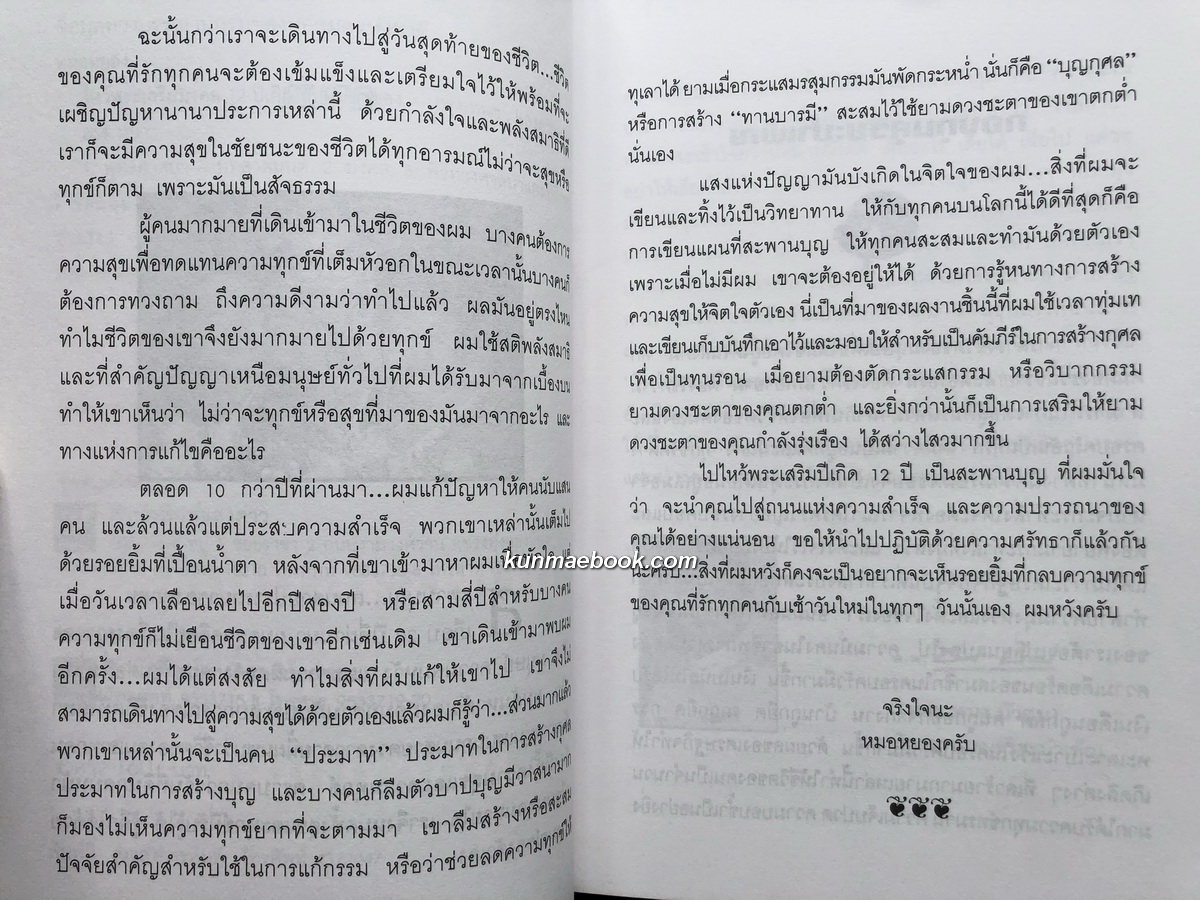 ฉะนั้นกว่าเราจะเดินทางไปสู่วันสุดท้ายของชีวิต...ชีวิต
ของคุณที่รักทุกคนจะต้องเข้มแข็งและเตรียมใจไว้ให้พร้อมที่จะ
เผชิญปัญหานานาประการเหล่านี้ ด้วยกำลังใจและพลังสมาธิที่ดี
เราก็จะมีความสุขในชัยชนะของชีวิตได้ทุกอารมณ์ไม่ว่าจะสุขหรือ
ทุกข์ก็ตาม เพราะมันเป็นสัจธรรม
ผู้คนมากมายที่เดินเข้ามาในชีวิตของผม บางคนต้องการ
ความสุขเพื่อทดแทนความทุกข์ที่เต็มหัวอกในขณะเวลานั้นบางคนก็
ต้องการทวงถาม ถึงความดีงามว่าทำไปแล้ว ผลมันอยู่ตรงไหน
ทำไมชีวิตของเขาจึงยังมากมายไปด้วยทุกข์ ผมใช้สติพลังสมาธิ
และที่สำคัญปัญญาเหนือมนุษย์ทั่วไปที่ผมได้รับมาจากเบื้องบน
ทำให้เขาเห็นว่า ไม่ว่าจะทุกข์หรือสุขที่มาของมันมาจากอะไร และ
ทางแห่งการแก้ไขคืออะไร
ตลอด 10 กว่าปีที่ผ่านมา...ผมแก้ปัญหาให้คนนับแสน
คน และล้วนแล้วแต่ประสบความสำเร็จ พวกเขาเหล่านั้นเต็มไป
ด้วยรอยยิ้มที่เปื้อนน้ำตา หลังจากที่เขาเข้ามาหาผม
เมื่อวันเวลาเลือนเลยไปอีกปีสองปี หรือสามสี่ปีสำหรับบางคน
ความทุกข์ก็ไม่เยือนชีวิตของเขาอีกเช่นเดิม เขาเดินเข้ามาพบผม
อีกครั้ง...ผมได้แต่สงสัย ทำไมสิ่งที่ผมแก้ให้เขาไป เขาจึงไม่
สามารถเดินทางไปสู่ความสุขได้ด้วยตัวเองแล้วผมก็รู้ว่า...ส่วนมากแล้ว
พวกเขาเหล่านั้นจะเป็นคน “ประมาท” ประมาทในการสร้างกุศล
ประมาทในการสร้างบุญ และบางคนก็ลืมตัวบาปบุญมีวาสนามาก
ก็มองไม่เห็นความทุกข์ยากที่จะตามมา เขาลืมสร้างหรือสะสม
ปัจจัยสำคัญสำหรับใช้ในการแก้กรรม หรือว่าช่วยลดความทุกข์ให้
kunmaebook.com
ทุเลาได้ ยามเมื่อกระแสมรสุมกรรมมันพัดกระหน่ำ นั่นก็คือ “บุญกุศล”
หรือการสร้าง “ทานบารมี” สะสมไว้ใช้ยามดวงชะตาของเขาตกต่ำ
นั่นเอง
แสงแห่งปัญญามันบังเกิดในจิตใจของผม...สิ่งที่ผมจะ
เขียนและทิ้งไว้เป็นวิทยาทาน ให้กับทุกคนบนโลกนี้ได้ดีที่สุดก็คือ
การเขียนแผนที่สะพานบุญ ให้ทุกคนสะสมและทำมันด้วยตัวเอง
เพราะเมื่อไม่มีผม เขาจะต้องอยู่ให้ได้ ด้วยการรู้หนทางการสร้าง
ความสุขให้จิตใจตัวเอง นี่เป็นที่มาของผลงานชิ้นนี้ที่ผมใช้เวลาทุ่มเท
และเขียนเก็บบันทึกเอาไว้และมอบให้สำหรับเป็นคัมภีร์ในการสร้างกุศล
เพื่อเป็นทุนรอน เมื่อยามต้องตัดกระแสกรรม หรือวิบากกรรม
ยามดวงชะตาของคุณตกต่ำ และยิ่งกว่านั้นก็เป็นการเสริมให้ยาม
ดวงชะตาของคุณกำลังรุ่งเรือง ได้สว่างไสวมากขึ้น
ไปไหว้พระเสริมปีเกิด 12 ปี เป็นสะพานบุญ ที่ผมมั่นใจ
ว่า จะนำคุณไปสู่ถนนแห่งความสำเร็จ และความปรารถนาของ
คุณได้อย่างแน่นอน ขอให้นำไปปฏิบัติด้วยความศรัทธาก็แล้วกัน
นะครับ...สิ่งที่ผมหวังก็คงจะเป็นอยากจะเห็นรอยยิ้มที่กลบความทุกข์
ของคุณที่รักทุกคนกับเช้าวันใหม่ในทุกๆ วันนั้นเอง ผมหวังครับ
จริงใจนะ
หมอหยองครับ